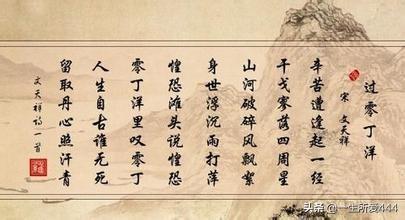 过零丁洋
宋 文天祥
辛苦遭逢起一经
干戈寥落四周星
山河破碎风飘絮
身世浮沉雨打萍
惶恐滩头说惶恐
零丁洋里叹零丁
人生自古谁无死
留取丹心照汗青
文天祥诗一首
头条 @一生所爱444